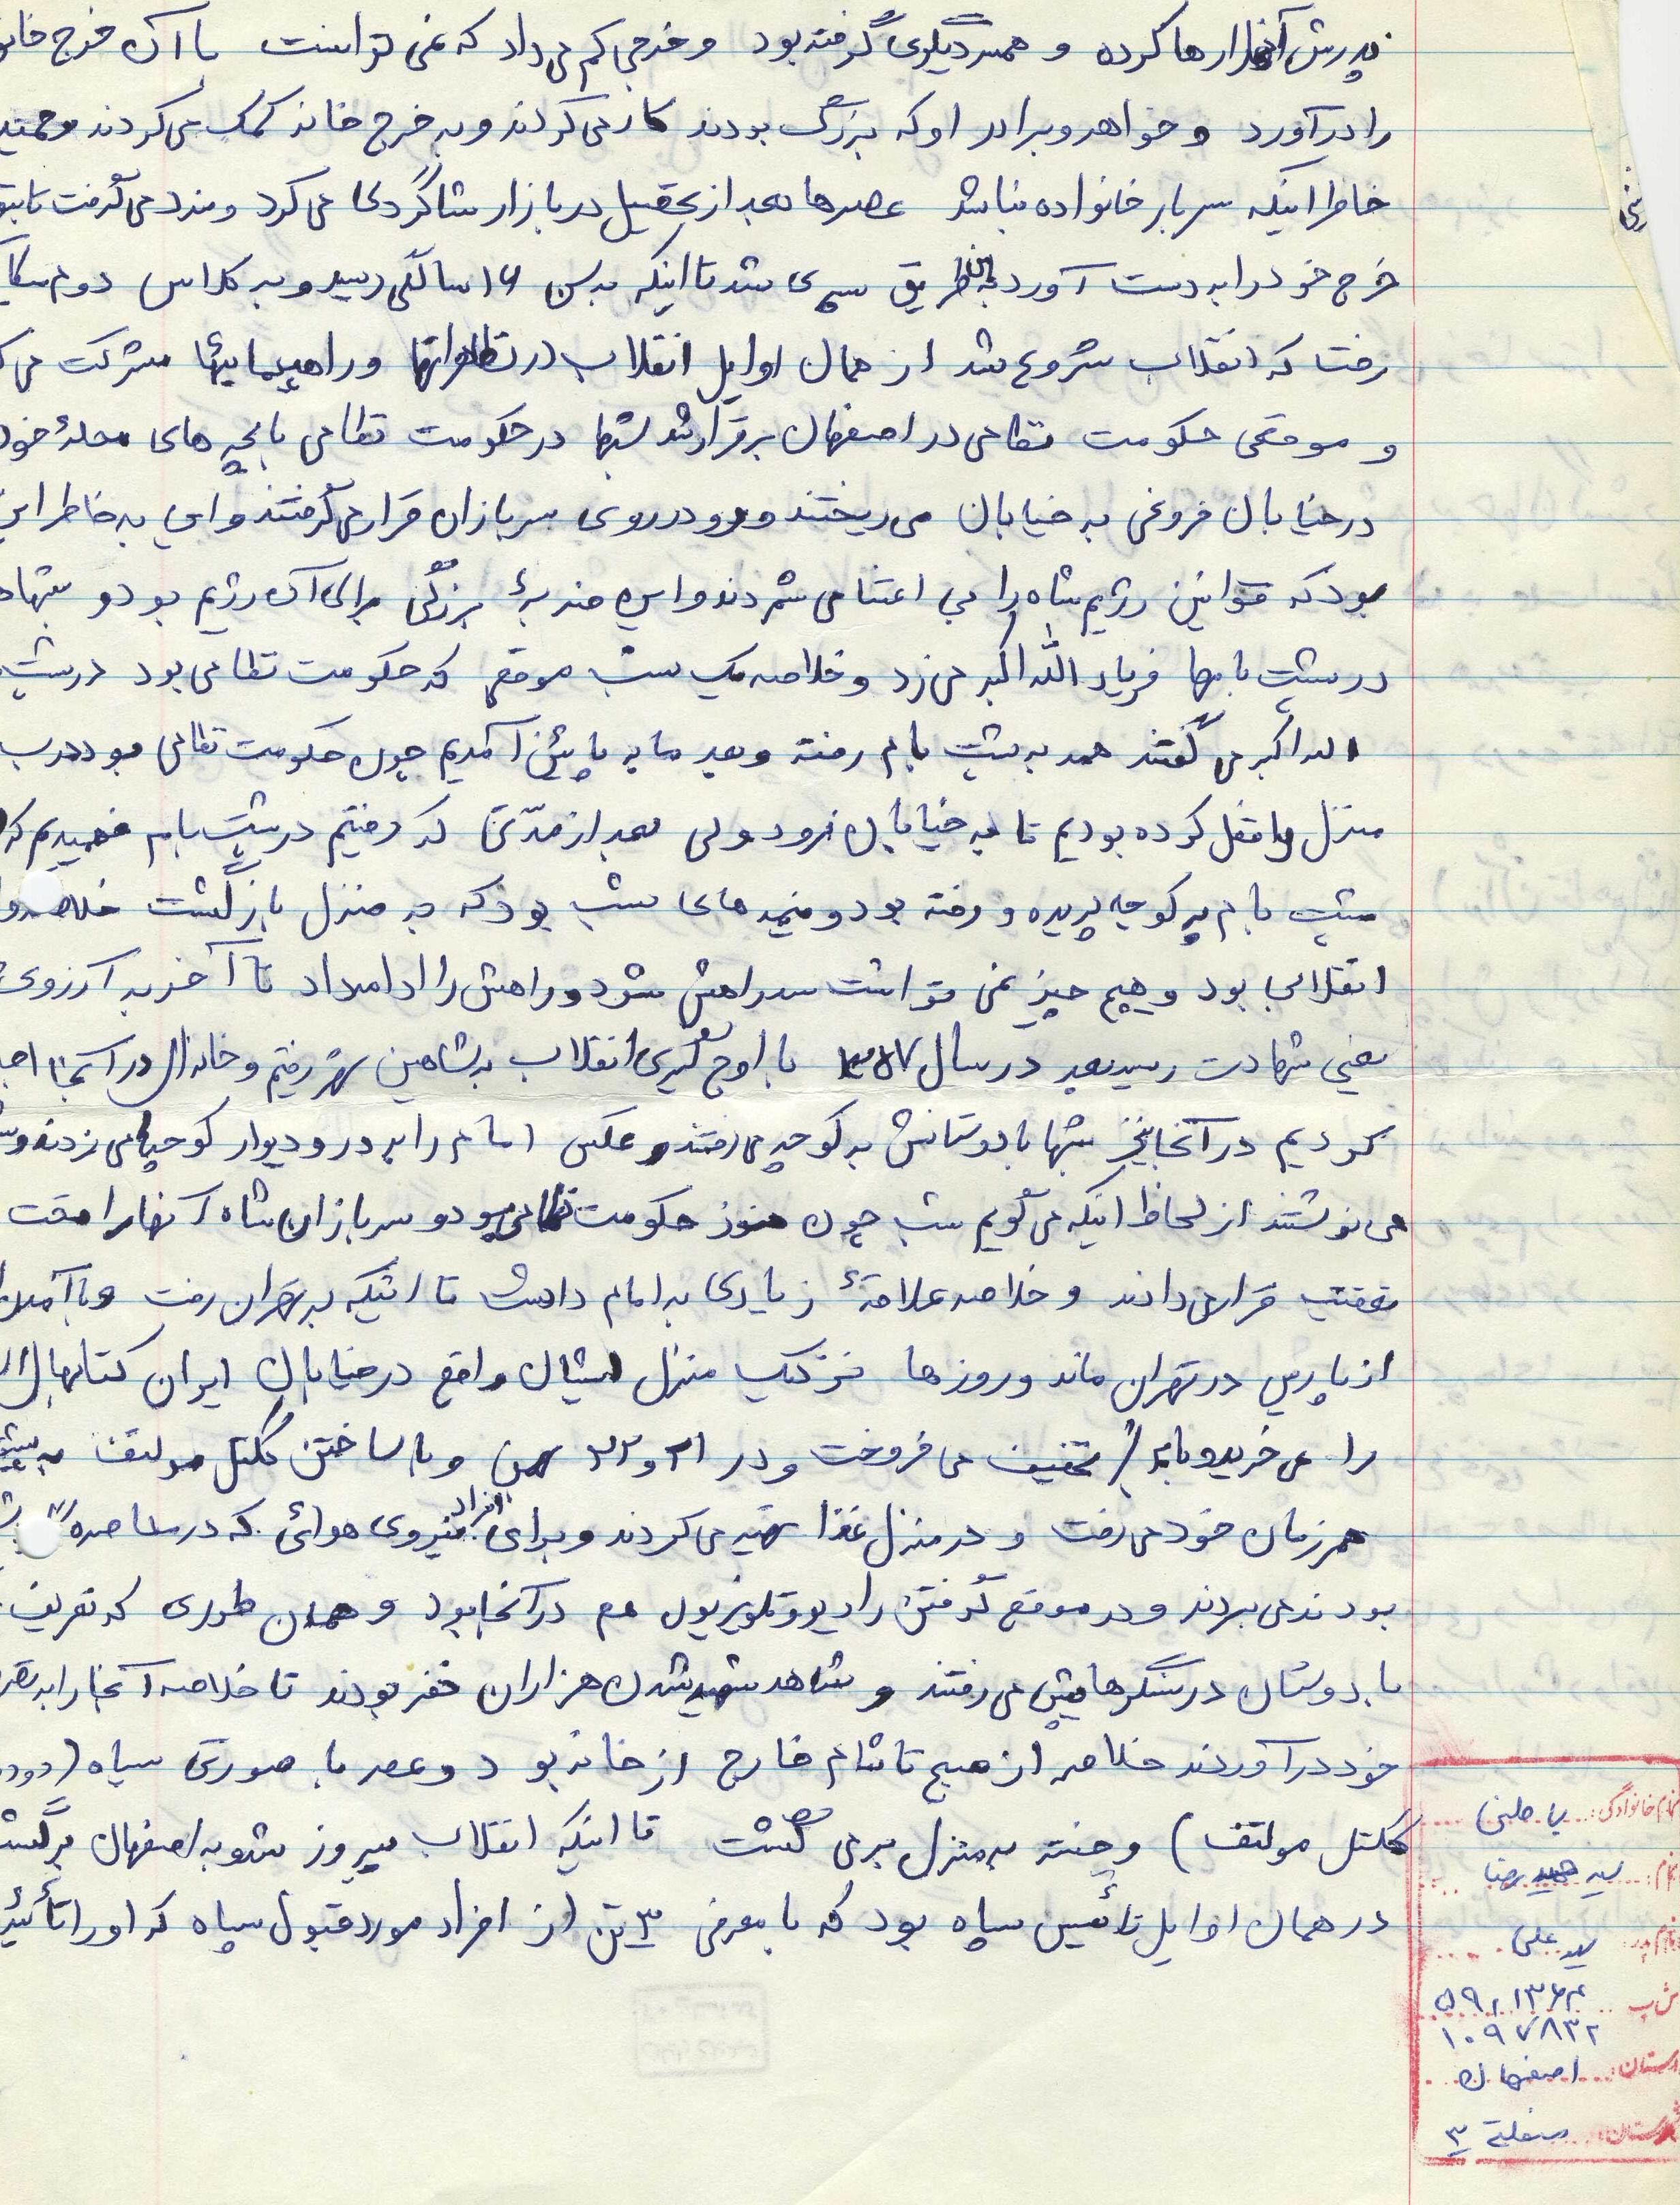 پدرش آنها را رها کرده و همسر دیگری گرفته بود و خرجی کم می داد که نمی توانست با آن خرج خانه
را درآورد و خواهر و برادر او که بزرگ بودند کار می کردند و به خرج خانه کمک می کردند و حمید
خاطر اینکه سربار خانواده نباشد عصرها بعد از تحصیل در بازار شاگردی می کرد و مزد می گرفت تا بتو
خرج خود را به دست آورد به این طریق سپری شد تا اینکه به سن ۱۶ سالگی رسید و به کلاس دوم
رفت که انقلاب شروع شد از همان اوایل انقلاب در تظاهراتها و راهپیمائیها شرکت می ک
و موقعی حکومت نظامی در اصفهان برقرار شد شبها در حکومت نظامی با بچه های محلۀ خود
در خیابان فروغی به خیابان می ریختند و رو در روی سربازان قرار می گرفتند و این به خاطر این
بود که قوانین رژیم شاه را بی اعتنا می شمردند و این ضربۀ بزرگی برای آن رژیم بود و شبها
در پشت بامها فریاد الله اکبر می زد و خلاصه یک شب موقعی که حکومت نظامی بود در پشت
الله اکبر می گفتند همه به پشت بام رفته و بعد ما به پائین آمدیم چون حکومت نظامی بود درب
منزل را قفل کرده بودیم تا به خیابان نرود ولی بعد از مدّتی که رفتیم در پشت بام فهمیدیم که
پشت بام به کوچه پریده و رفته بود و نیمه های شب بود که به منزل بازگشت خلاصه او
انقلابی بود و هیچ چیز نمی توانست سد راهش شود و راهش را ادامه داد تا آخر به آرزوی
یعنی شهادت رسید بعد در سال ۱۳۵۷ با اوج گیری انقلاب به شاهین شهر رفتیم و خانه ای در آنجا اجا
کردیم در آنجا نیز شبها با دوستانش به کوچه می رفتند و عکس امام را به در و دیوار کوچه ها می زدند و ش
می نوشتند از لحاظ اینکه می گویم شب چون هنوز حکومت نظامی بود و سربازان شاه آنها را تحت
تعقیب قرار می دادند و خلاصه علاقۀ زیادی به امام داشت تا اینکه به تهران رفت و با آمدن
از پاریس در تهران ماند و روزها نزدیک منزل ایشان واقع در خیابان ایران کتابهای
را می خرید و با تخفیف می فروخت و در ۲۱ و ۲۲ بهمن و با ساختن کُکتل مولتف به
همرزمان خود می رفت و در منزل غذا تهیه می کردند و برای افراد نیروی هوائی که در محاصره
بودند می بردند و در موقع گرفتن رادیو و تلویزیون هم در آنجا بود و همان طوری که تعریف
با دوستان در سنگرها پیش می رفتند و شاهد شهید شدن هزاران نفر بودند تا خلاصه آنجا را به تصر
خود درآوردند خلاصه از صبح تا شام خارج از خانه بود و عصر با صورتی سیاه (دود
ککتل مولتف) و خسته به منزل برمی گشت تا اینکه انقلاب پیروز شد و به اصفهان برگشت
در همان اوایل تأسیس سپاه بود که با معرفی ۳ تن از افراد مورد قبول سپاه که او را تأئید
نام خانوادگی:
نام: سید حمید رضا
نام پدر: سید علی
ش پ ۵۹۰۱۳۶۴
۱۰۹۷۸۳۲
استان: اصفهان
شهرستان: منطقه ۳